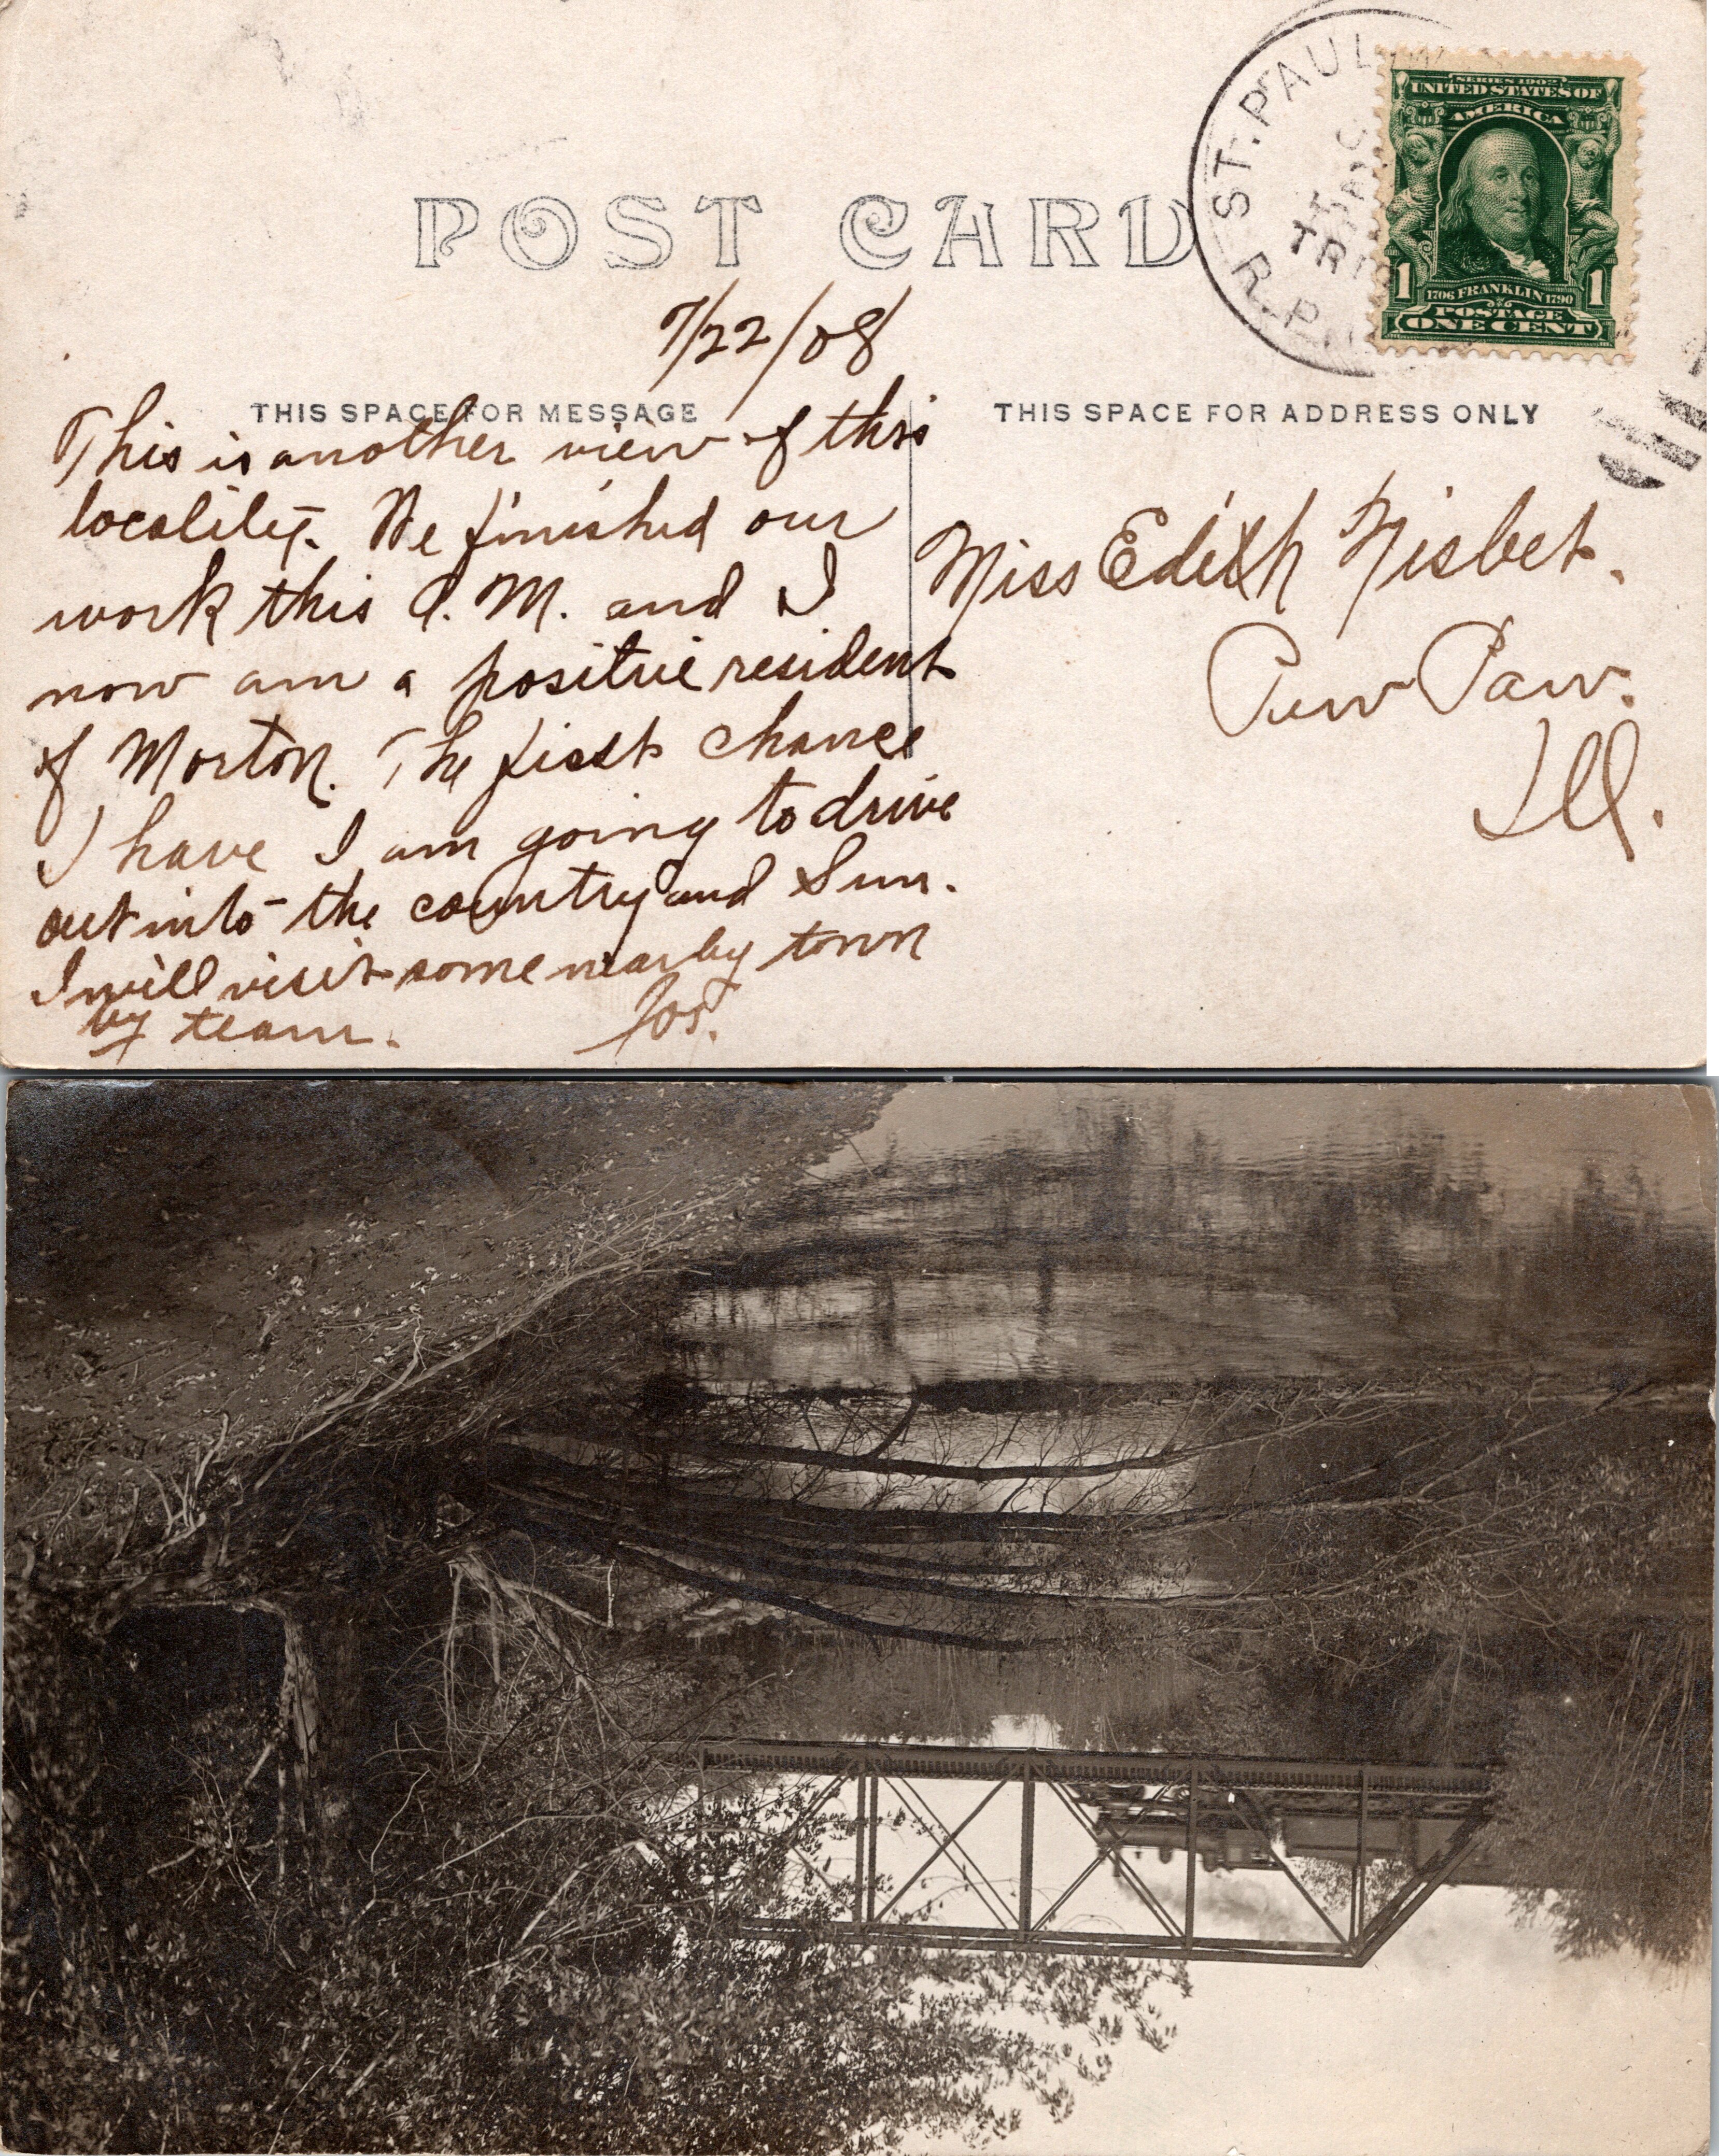 ST. PAUL
R.P.
TR
SERIES 1902
UNITED STATES OF
AMERICA
1 1
1706 FRANKLIN 1790
POSTAGE
ONE CENT
POST CARD
7/22/08
THIS SPACE FOR MESSAGE
THIS SPACE FOR ADDRESS ONLY
This is another view of this
locality. We finished our
work this A.M. and I
now am a positive resident
of Morton. The first chance
I have I am going to drive
out into the country and Sun.
I will visit some nearby town
by team. Jos.
Miss Edith Nisbet.
Paw Paw.
Ill.